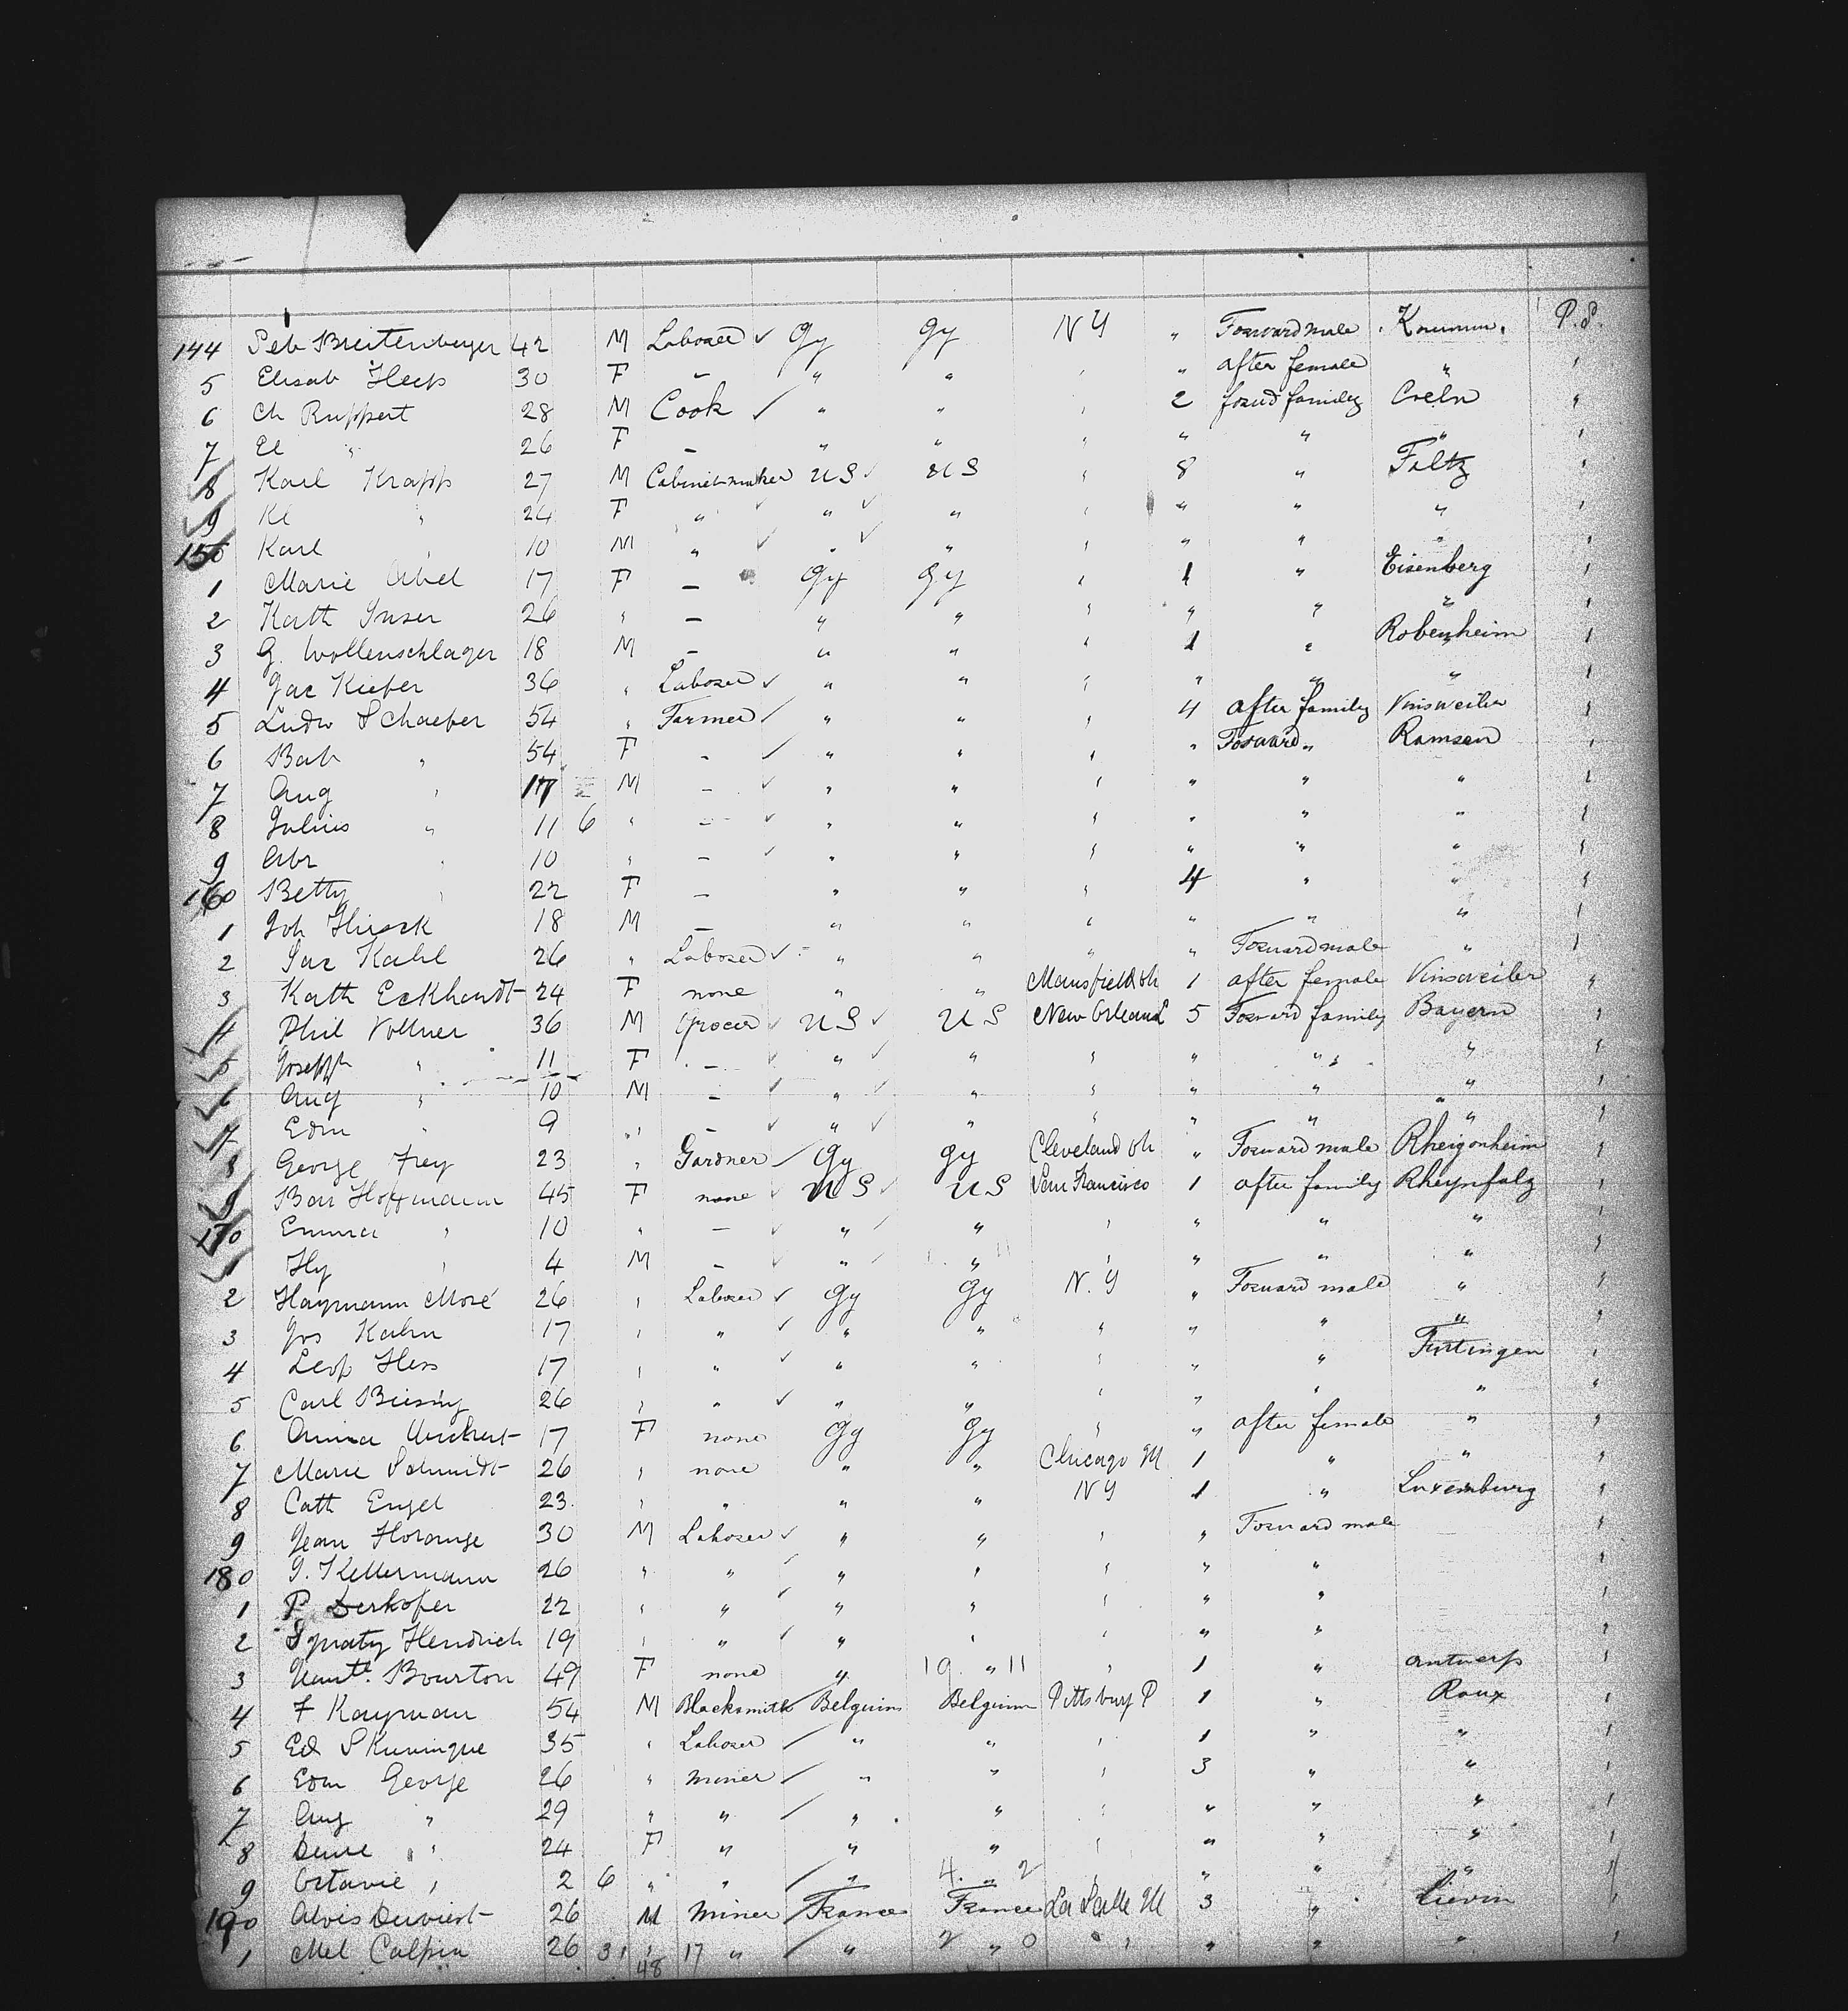 144 Pet Breitenberger 42 M Laborer ✓ Gy Gy N Y " Forward male P.S.
5 Elisab Heep 30 F – " " ' " after female " '
6 Ch Ruppert 28 M Cook ✓ " " ' 2 forwd family Creln "
7 El " 26 F – " " ' " " " '
8 Karl Krapp 27 M Cabinet maker US ✓ US ' 8 " Foltz '
9 Kl " 24 F " ✓ " ✓ " ' " " " '
150 Karl ' 10 M " ✓ " ✓ " ' " " " '
1 Marie Abel 17 F – Gy Gy ' 1 " Eisenberg '
2 Kath Inser 26 ' – " " ' " " " '
3 G. Wollenschlager 18 M – " " ' 1 " Robenheim '
4 Jac Kiefer 36 ' Laborer ✓ " " ' " " " '
5 Ludw Schaefer 54 ' Farmer ✓ " " ' 4 after family Vinsweiler '
6 Bab " 54 F - ✓ " " ' " Forward " Ramsen '
7 Aug ' 17 M – ✓ " " ' " " " '
8 Julius " 11 6 ' – ✓ " " ' " " " '
9 Abr ' 10 ' – ✓ " " ' " " " '
160 Betty ' 22 F – " " ' 4 " " '
1 Joh 18 M – " " ' " " " '
2 Jac Kahl 26 ' Laborer ✓ " " " " Forward male " '
3 Kath Eckhardt 24 F none " " Mansfield Oh 1 after female Vinsweiler "
4 Phil Vollmer 36 M Grocer ✓ US ✓ US New Orleans 5 Forward family Bayern '
5 Joseph " 11 F – ✓ " ✓ " ' " " " '
6 Aug ' 10 M – ✓ " ✓ " ' " " " '
7 Edm " 9 " – ✓ " ✓ " ' " " " '
8 George Frey 23 ' Gardner ✓ Gy Gy Cleveland Oh " Forward male Rheigonheim '
9 Bar Hoffmann 45 F none ✓ US ✓ US San Francisco 1 after family Rheynfalz '
170 Emma ' 10 ' – ✓ " ✓ " ' " " " '
1 Hy ' 4 M – ✓ " ✓ " ' " " " '
2 Haymann Mosé 26 ' Laborer ✓ Gy Gy N. Y " Forward male " '
3 Jos Kahn 17 ' " ✓ " " ' " " " '
4 Leop Hess 17 ' " ✓ " " ' " " Furtingen '
5 Carl Biesing 26 ' " ✓ " " ' " ' " "
6 Anna 17 F none Gy Gy ' " after female " '
7 Marie Schmidt 26 ' none " " Chicago Ill 1 " " '
8 Cath Engel 23 ' " " " N Y 1 " Luxemburg '
9 Jean Florange 30 M Laborer ✓ " " ' " Forward male '
180 J. Kellermann 26 ' " ✓ " ' ' " " '
1 P Derkofer 22 ' " ✓ " ' ' " " '
2 Ignatz Hendrich 19 ' " ✓ " ' ' " " '
3 Bourton 49 F none " 19 " 11 ' 1 " Antwerp '
4 F Kayman 54 M Blacksmith ✓ Belguim Belguim Pittsburg P 1 " Roux '
5 Ed 35 ' Laborer ✓ " " ' 1 " " '
6 Edm George 26 " miner ✓ " " ' 3 " " '
7 Aug " 29 " " ✓ " " ' " " " '
8 " ' 24 F " " " ' " " " '
9 Octavie ' 2 6 " " ✓ " 4. " 2 ' " " " '
190 Alvis Duviest 26 M Miner ✓ France France La Salle Ill 3 " Lievin '
1 Mel Calpin 26 31 ' 17 " ✓ " 2 " 0 ' " " " '
48